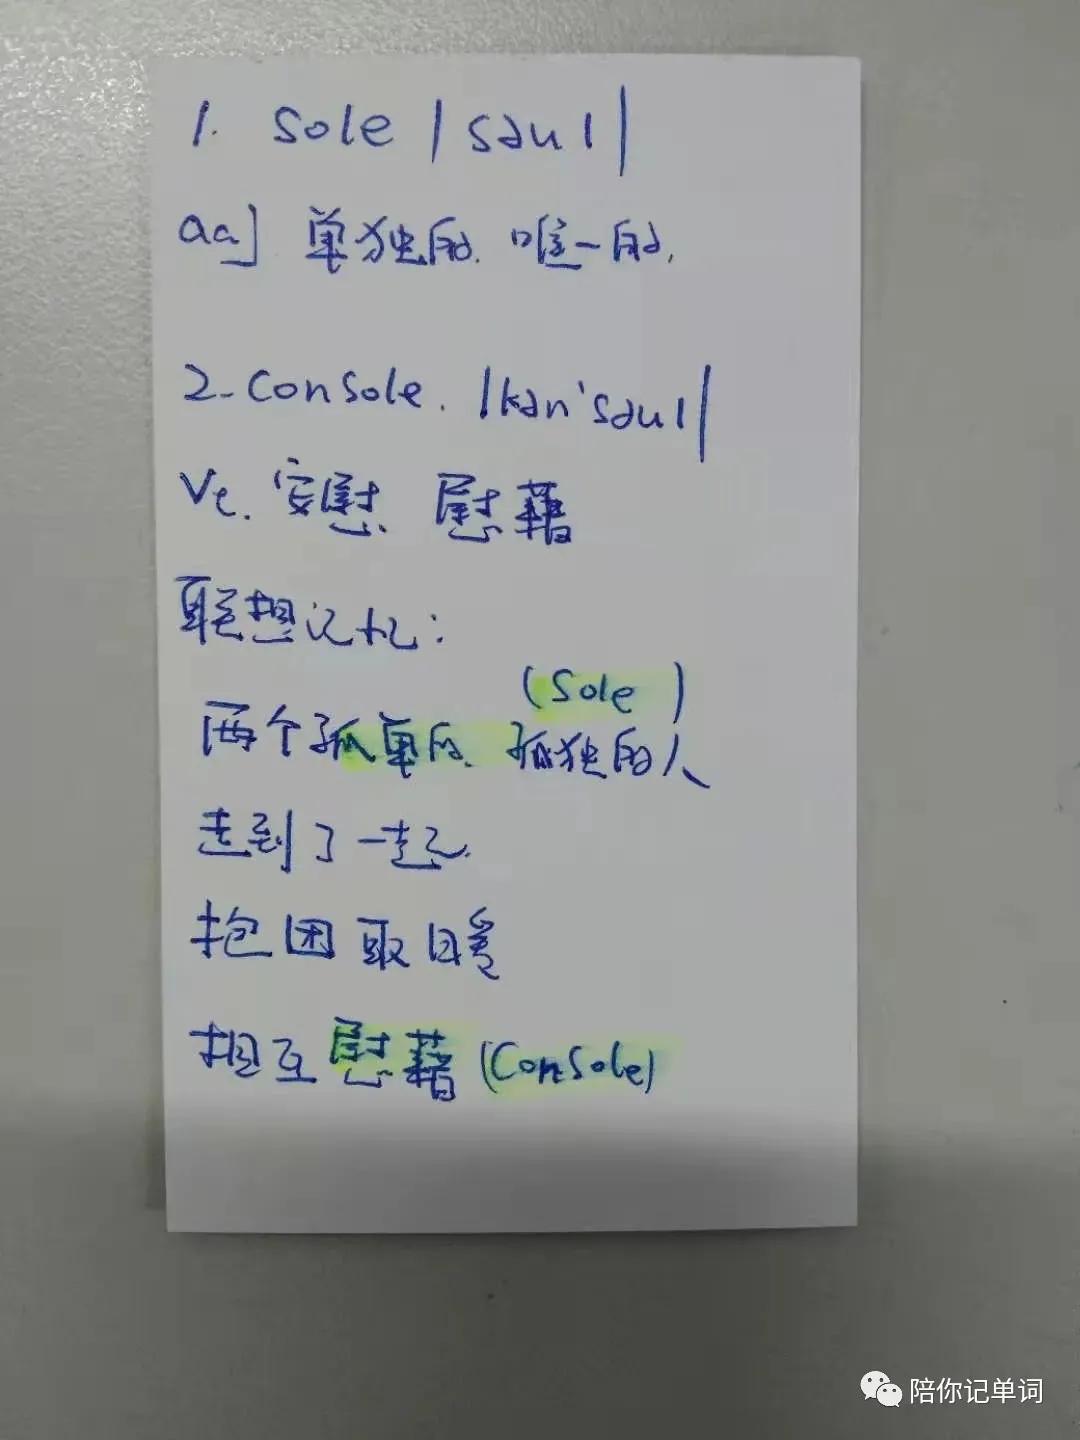 1. sole /səul/
adj 单独的. 唯一的.
2. console. /kən'səul/
Vt. 安慰、慰藉
联想记忆：
(Sole)
两个孤单的、孤独的人
走到了一起.
抱团取暖
相互慰藉 (Console)
陪你记单词